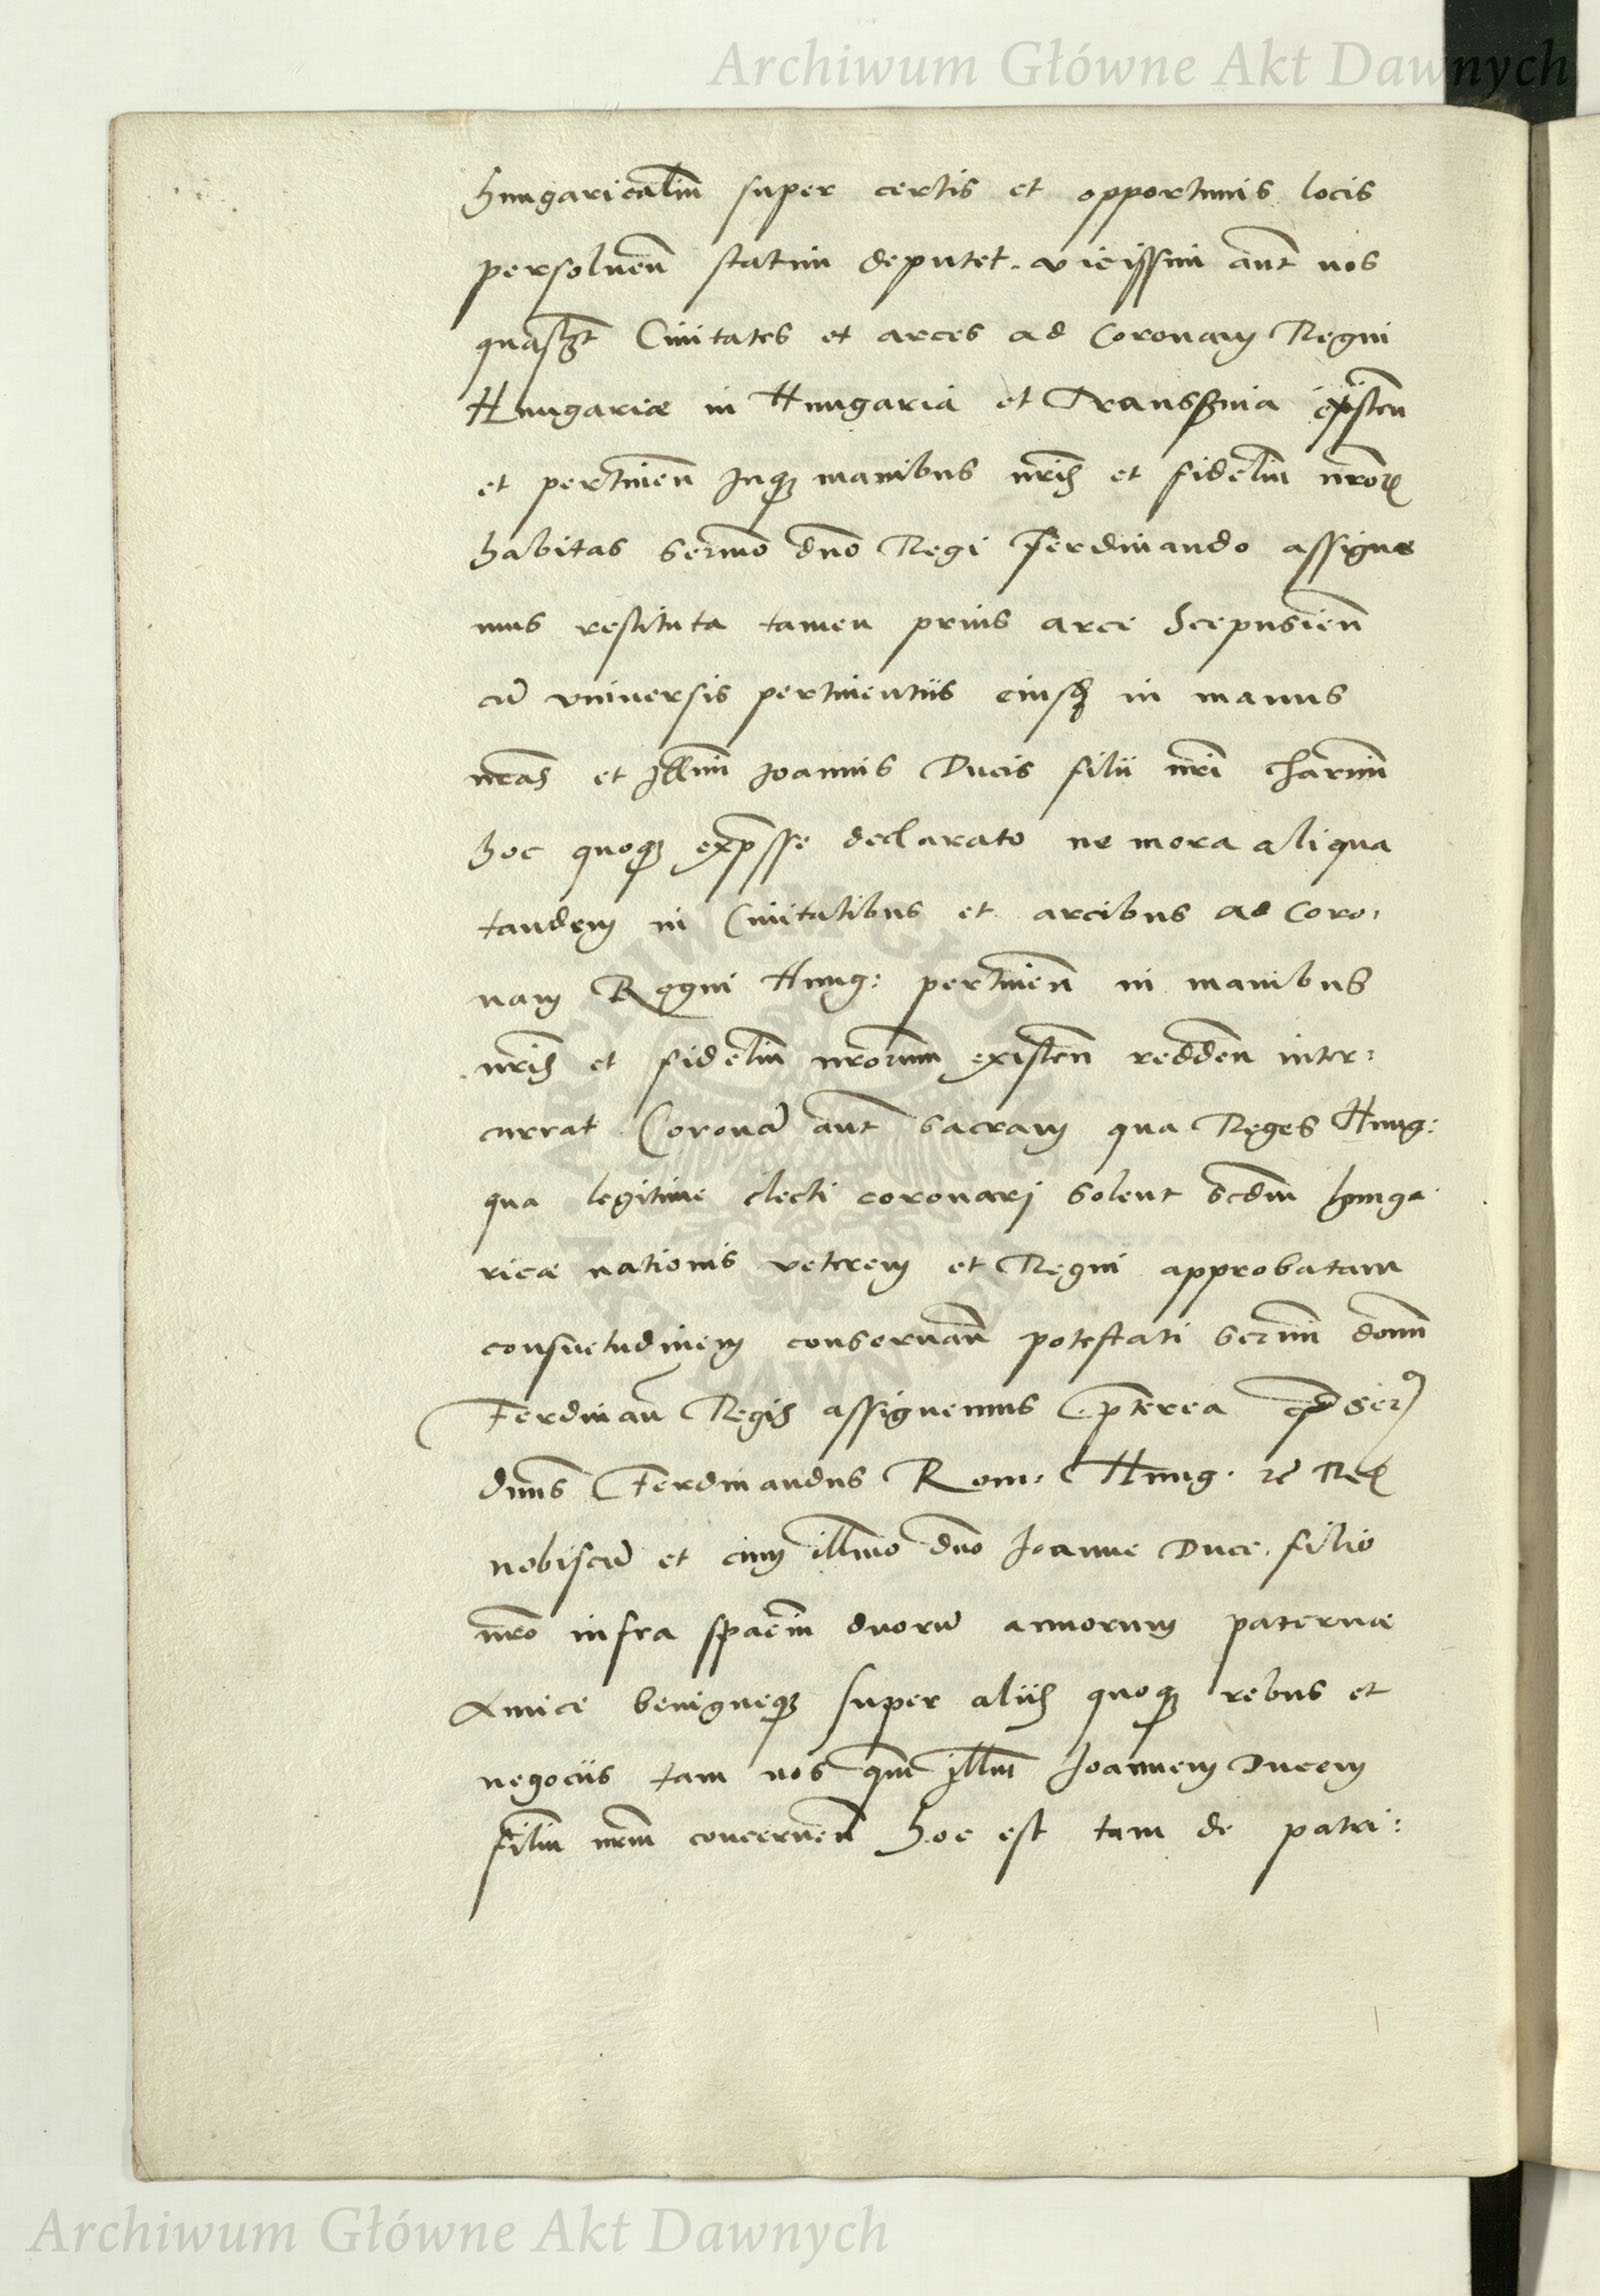 Archiwum Główne Akt Dawnych
hungaricaliũ super certis et opportunis locis
persolueñ statim deputet. vicissim aũt nos
quaslʒt Ciuitates et arces ad Coronam Regni
Hungariæ in Hungaria et Transsylnia existeñ
et pertineñ Inqʒ manibus nris et fideliũ nroꝝ
habitas sermo dno Regi Ferdinando assigna
mus restituta tamen prius arce Scepusieñ
cũ vniuersis pertinentiis eiusdʒ in manus
nras et Illmi Joannis Ducis filii nri charmi
hoc quoqʒ exp̃sse declarato ne mora aliqua
tandem in Ciuitatibus et arcibus ad Coro,
nam Regni Hung: pertineñ in manibus
nris et fideliũ nrorum existeñ reddeñ inter:
currat Coronã aũt sacram qua Reges Hung:
qua legitime electi coronarj solent scdm hunga
ricæ nationis veterem et Regni approbatam
consuetudinem conseruañ potestati sermi domi
Ferdinañ Regis assignemus P̃terea q̃ ser
dnus Ferdinandus Rom: Hung: Rex
nobiscũ et cum illmo dno Joanne Duce filio
nro infra spaciũ duorũ annorum paterne
Amice benigneqʒ super aliis quoqʒ rebus et
negociis tam nos qm̃ illm Joannem Ducem
filiũ nrm conserneñ hoc est tam de patri:
Archiwum Główne Akt Dawnych